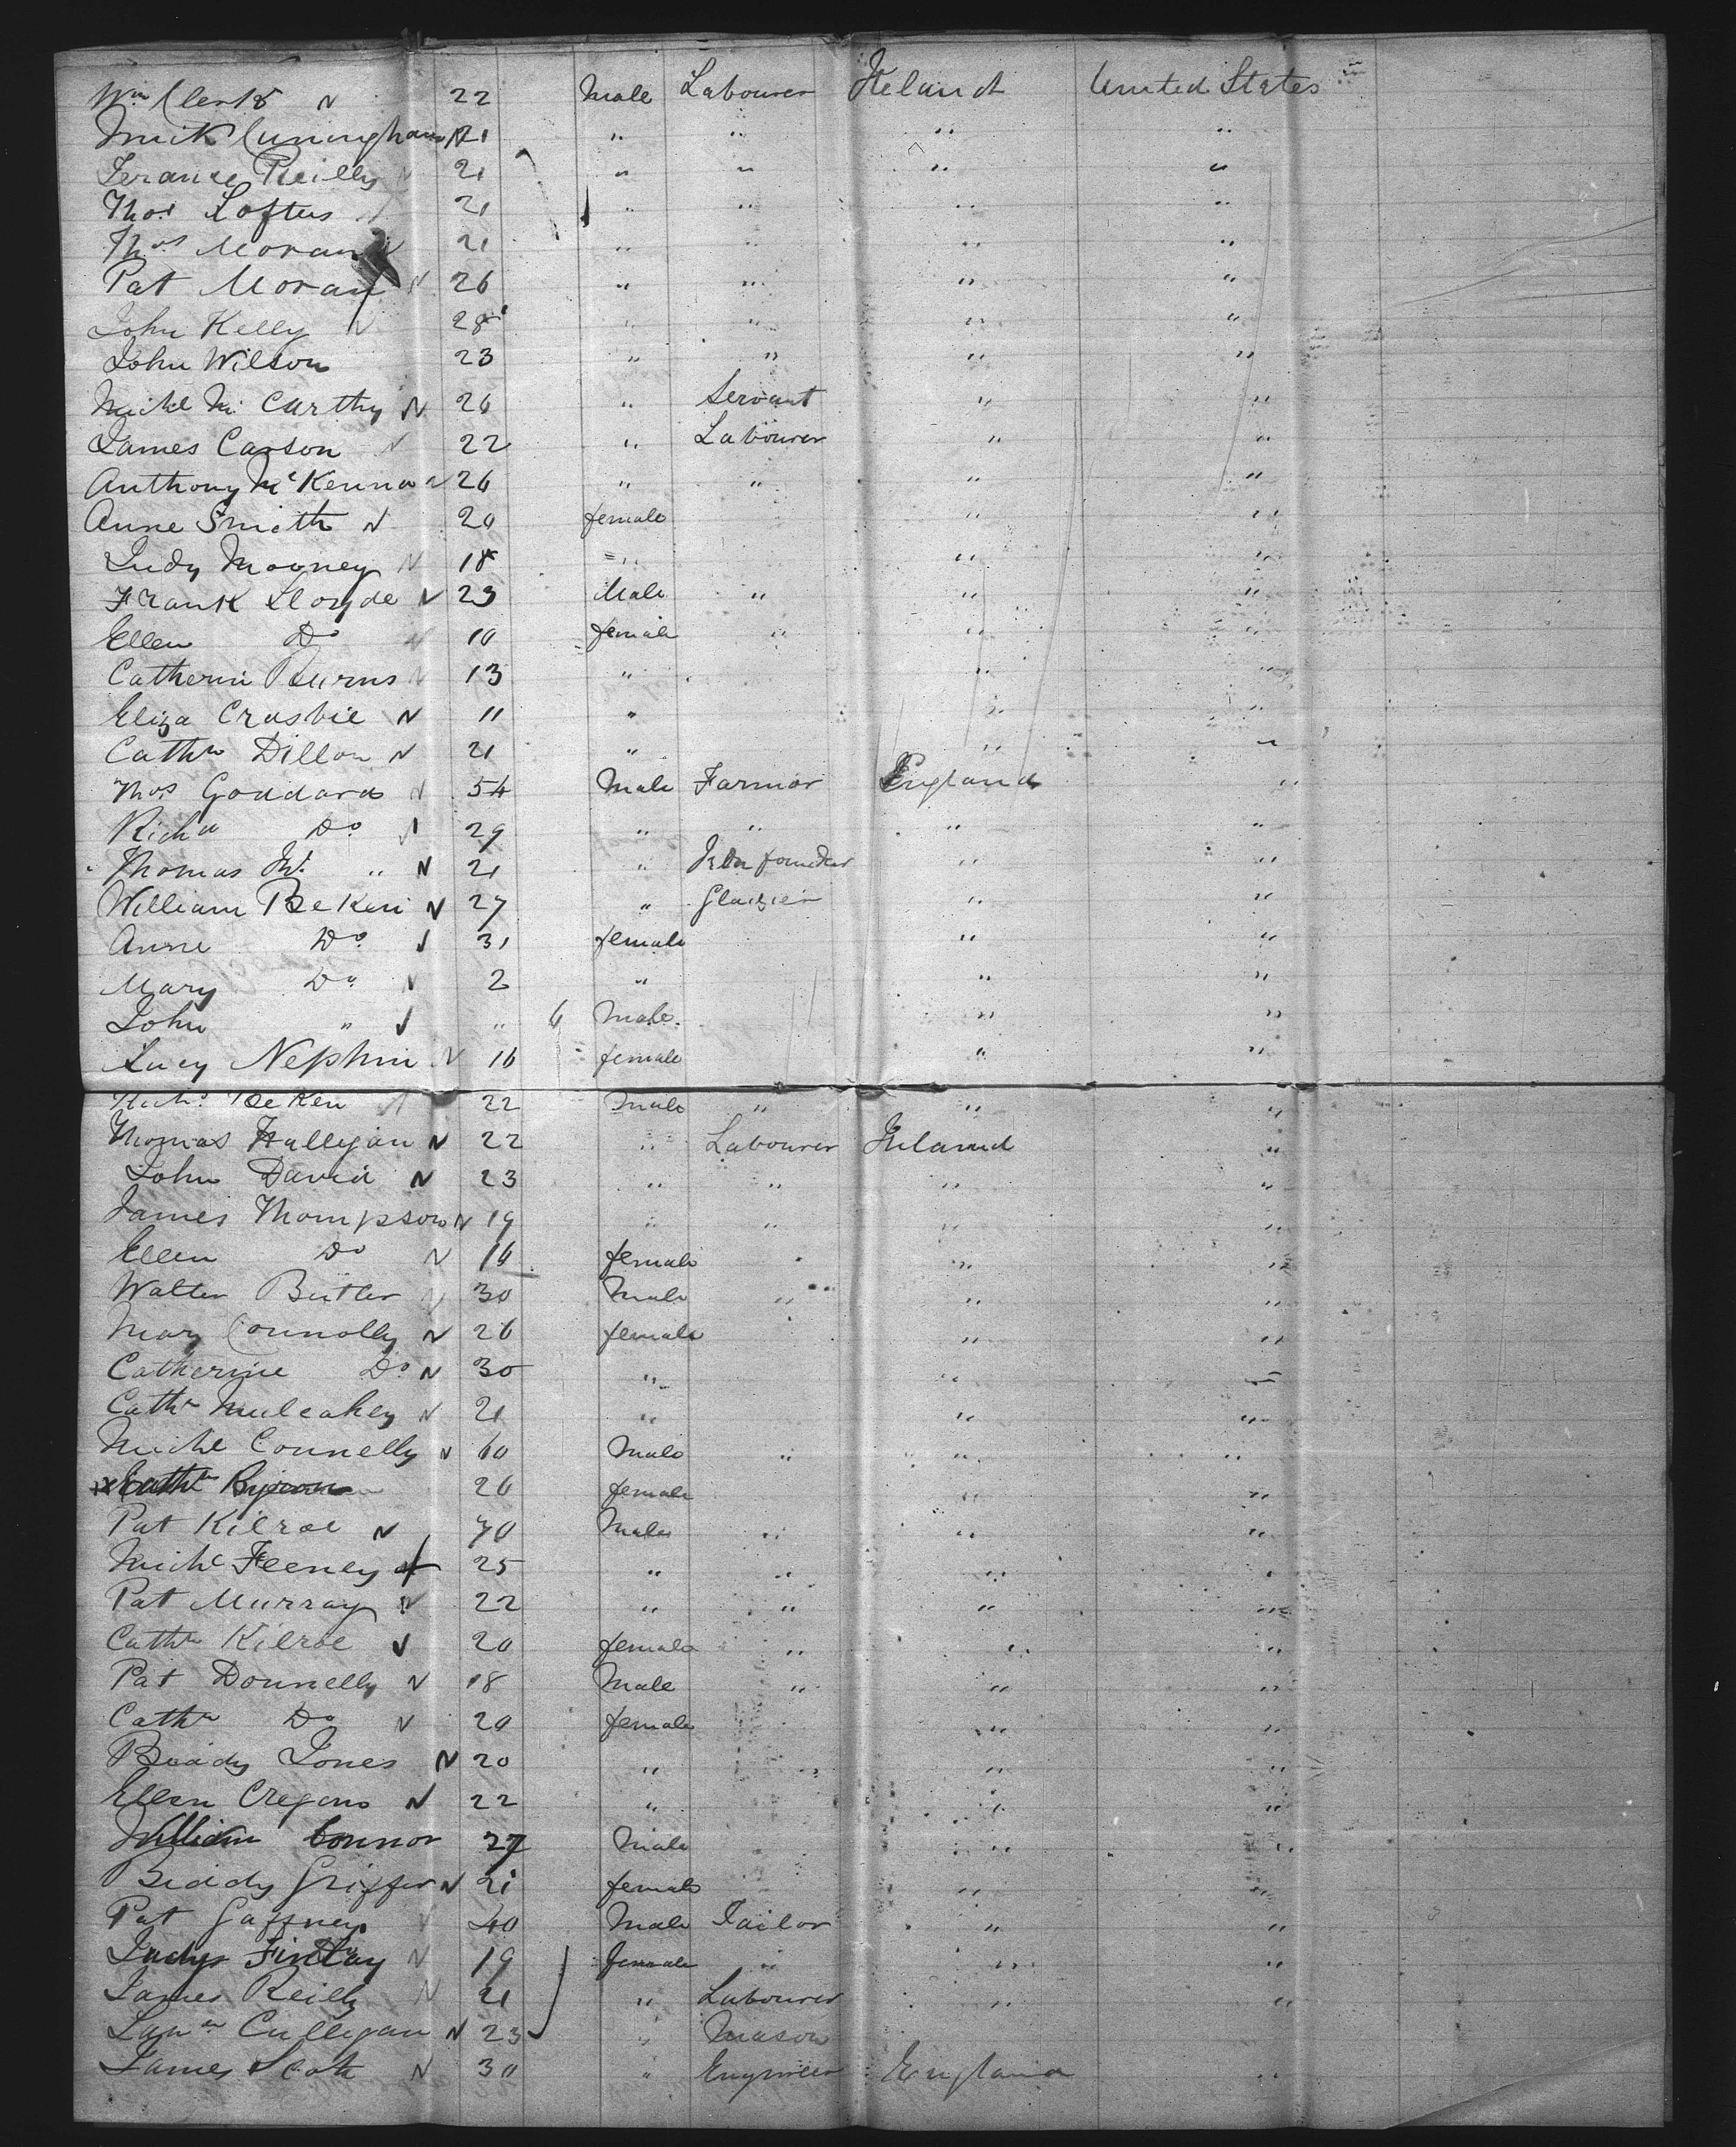 Wm Clerk N 22 Male Labourer Ireland United States
Mick Cuningham N 21 " " " "
Terance Reilly N 21 " " " "
Thos Loftus N 21 " " " "
Thos Moran N 21 " " " "
Pat Moran N 26 " " " "
John Kelly N 28 " " " "
John Wilson 23 " " " "
Michl Mc Carthy N 26 " Servant " "
James Carson N 22 " Labourer " "
Anthony McKenna N 26 " " " "
Anne Smith N 20 female " "
Judy Mooney N 18 " " "
Frank Lloyde N 23 Male " " "
Ellen Do N 10 female " " "
Catherin Burns N 13 " " "
Eliza Crosbie N 11 " " "
Cathn Dillon N 21 " " "
Thos Goddard N 54 Male Farmor England "
Richd Do N 29 " " " "
Thomas " N 21 " Iron founder " "
William Beken N 27 " Glazier " "
Anne Do N 31 female " "
Mary Do N 2 " " "
John " N " 6 Male " "
Lucy Nephin N 16 female " "
Richd Beken N 22 Male " " "
Thomas Hallegan N 22 " Labourer Ireland "
John David N 23 " " " "
James Thompson N 19 " " " "
Ellen Do N 16 female " "
Walter Butler N 30 Male " " "
Mary Connolly N 26 female " "
Catherine Do N 30 " " "
Cathn Mulcahey N 21 " " "
Michl Connelly N 60 Male " " "
Cathn 26 female " "
Pat Kilroe N 70 Male " " "
Michl Feeney N 25 " " " "
Pat Murray N 22 " " " "
Cathn Kilroe N 20 female " " "
Pat Donnelly N 18 Male " " "
Cathn Do N 20 female " "
Jones N 20 " " " "
Ellen Cregans N 22 " " "
William Connor 27 Male " "
Biddy Griffin N 21 female " "
Pat Gaffney N 40 Male Tailor " "
Judy Finlay N 19 female " " "
James Reilly N 21 " Labourer " "
Lawn Cullegan N 23 " Mason
James Scott N 30 " Engineer England "